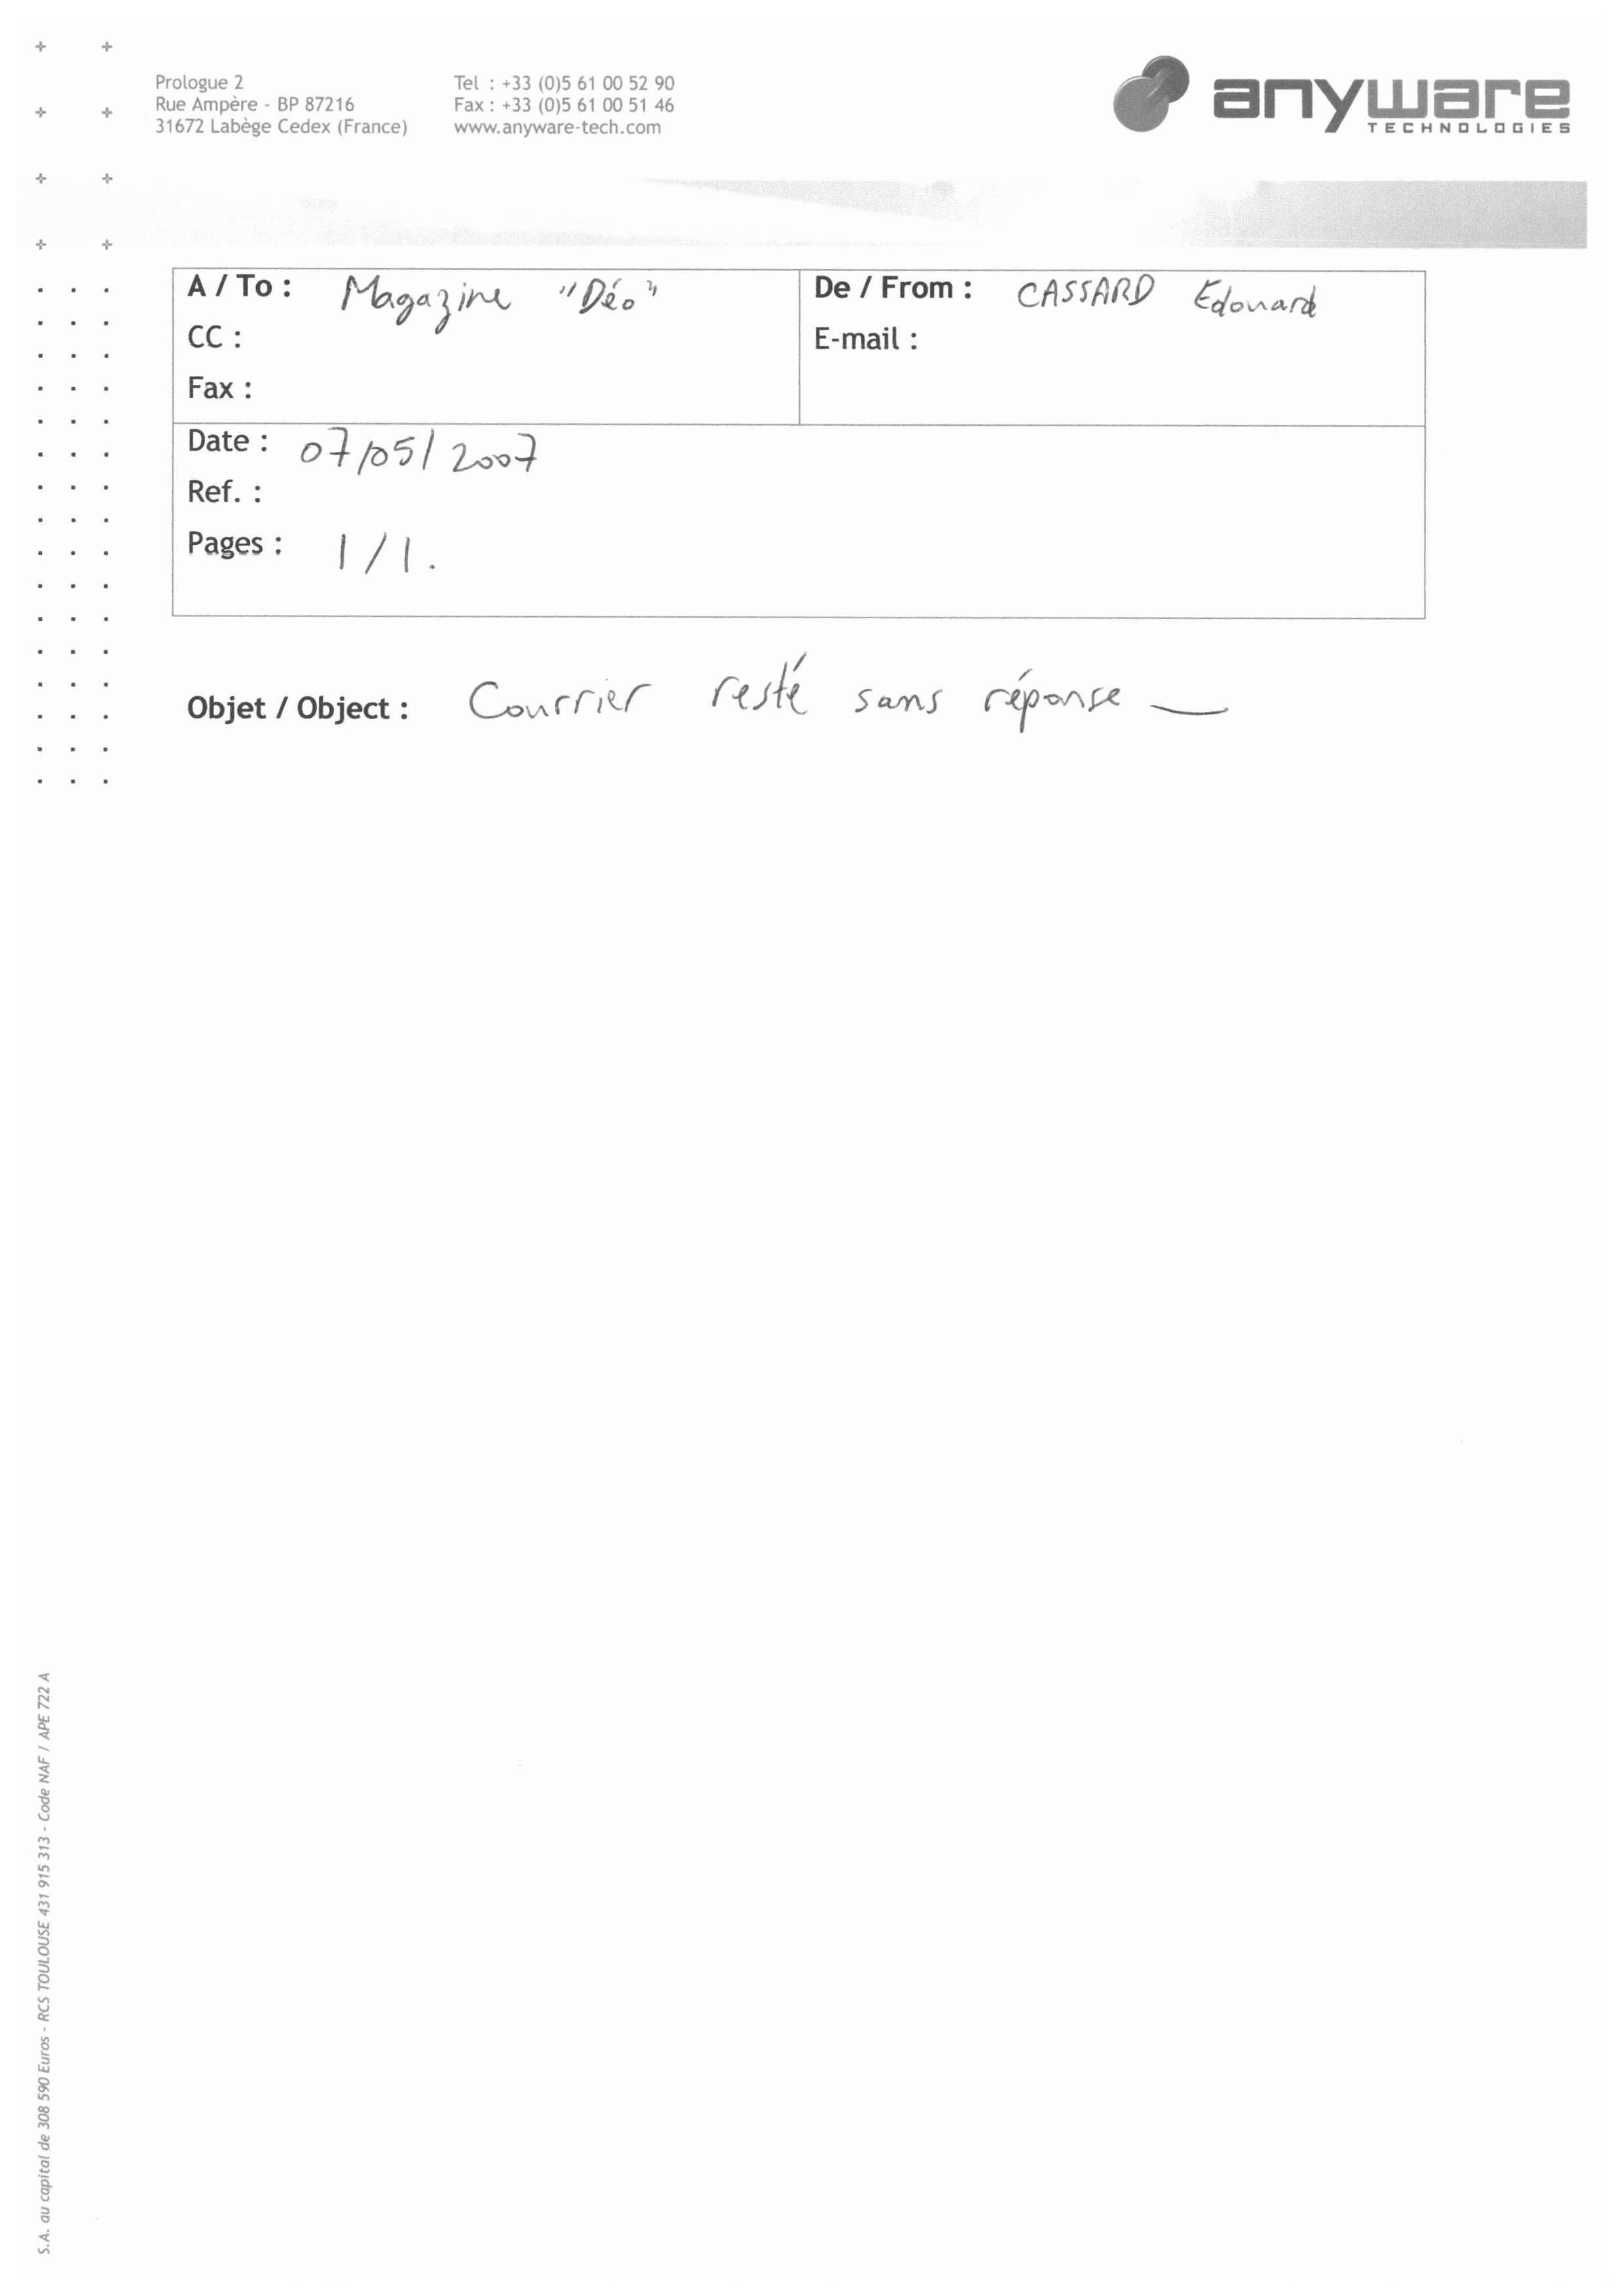 Prologue 2
Rue Ampère - BP 87216
31672 Labège Cedex (France)
Tel : +33 (0)5 61 00 52 90
Fax : +33 (0)5 61 00 51 46
www.anyware-tech.com
anyware
TECHNOLOGIES
A / To : Magazine "Déo"
CC :
Fax :
De / From : CASSARD Edouard
E-mail :
Date : 07/05/2007
Ref. :
Pages : 1/1.
Objet / Object : Courrier resté sans réponse —
S.A. au capital de 308 590 Euros - RCS TOULOUSE 431 915 313 - Code NAF / APE 722 A